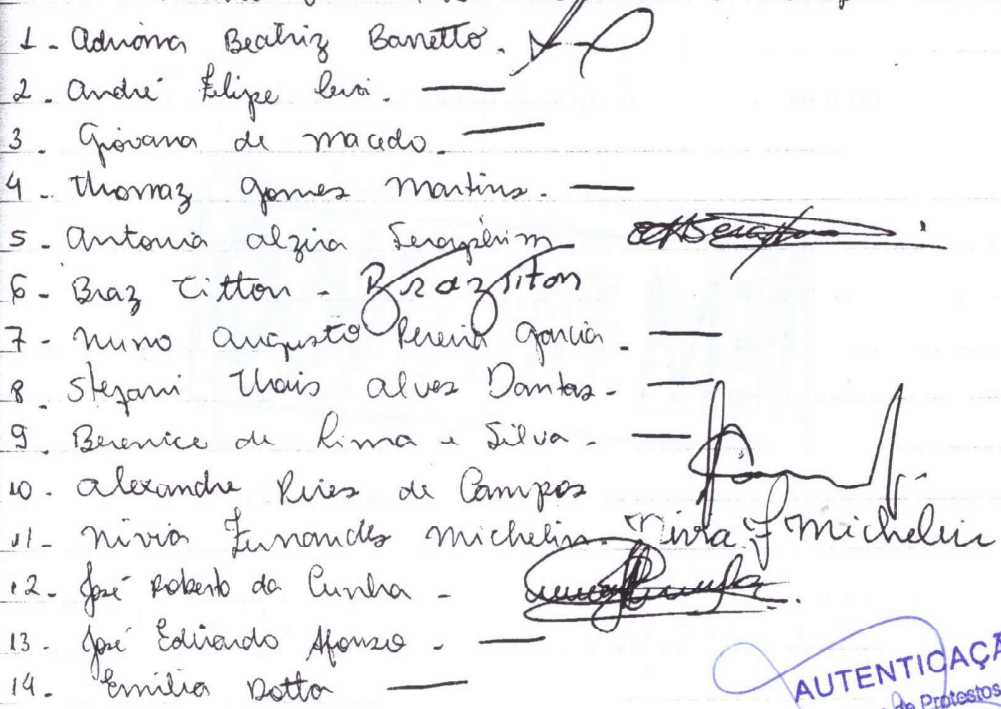 1 - Adriana Beatriz Barretto.
2. André Felipe
3 - Giovana de Macedo.
4 - Thomaz Gomes Martins.
5 - Antonia Alzira Seraphim
6 - Braz Titton - Braz Titon
7 - Nuno Augusto Pereira Garcia.
8. Stefani Thais Alves Dantas -
9. Berenice de Lima e Silva -
10 - Alexandre Pires de Campos
11 - Nivia Fernandes Michelin. Nivia F Michelin
12 - José Roberto da Cunha -
13 - José Eduardo Afonso -
14. Emilia Dotta
AUTENTICAÇÃ
de Protestos